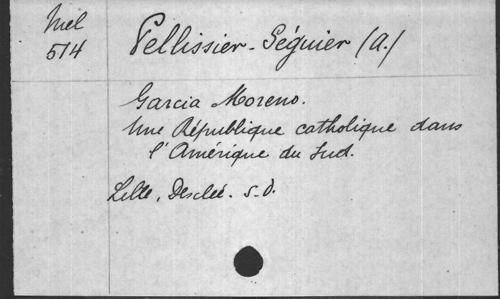 Mel
514
Pellissier-Séguier (A.)
Garcia Moreno.
Une République catholique dans
l'Amérique du Sud.
Lille, Desclée. S.D.